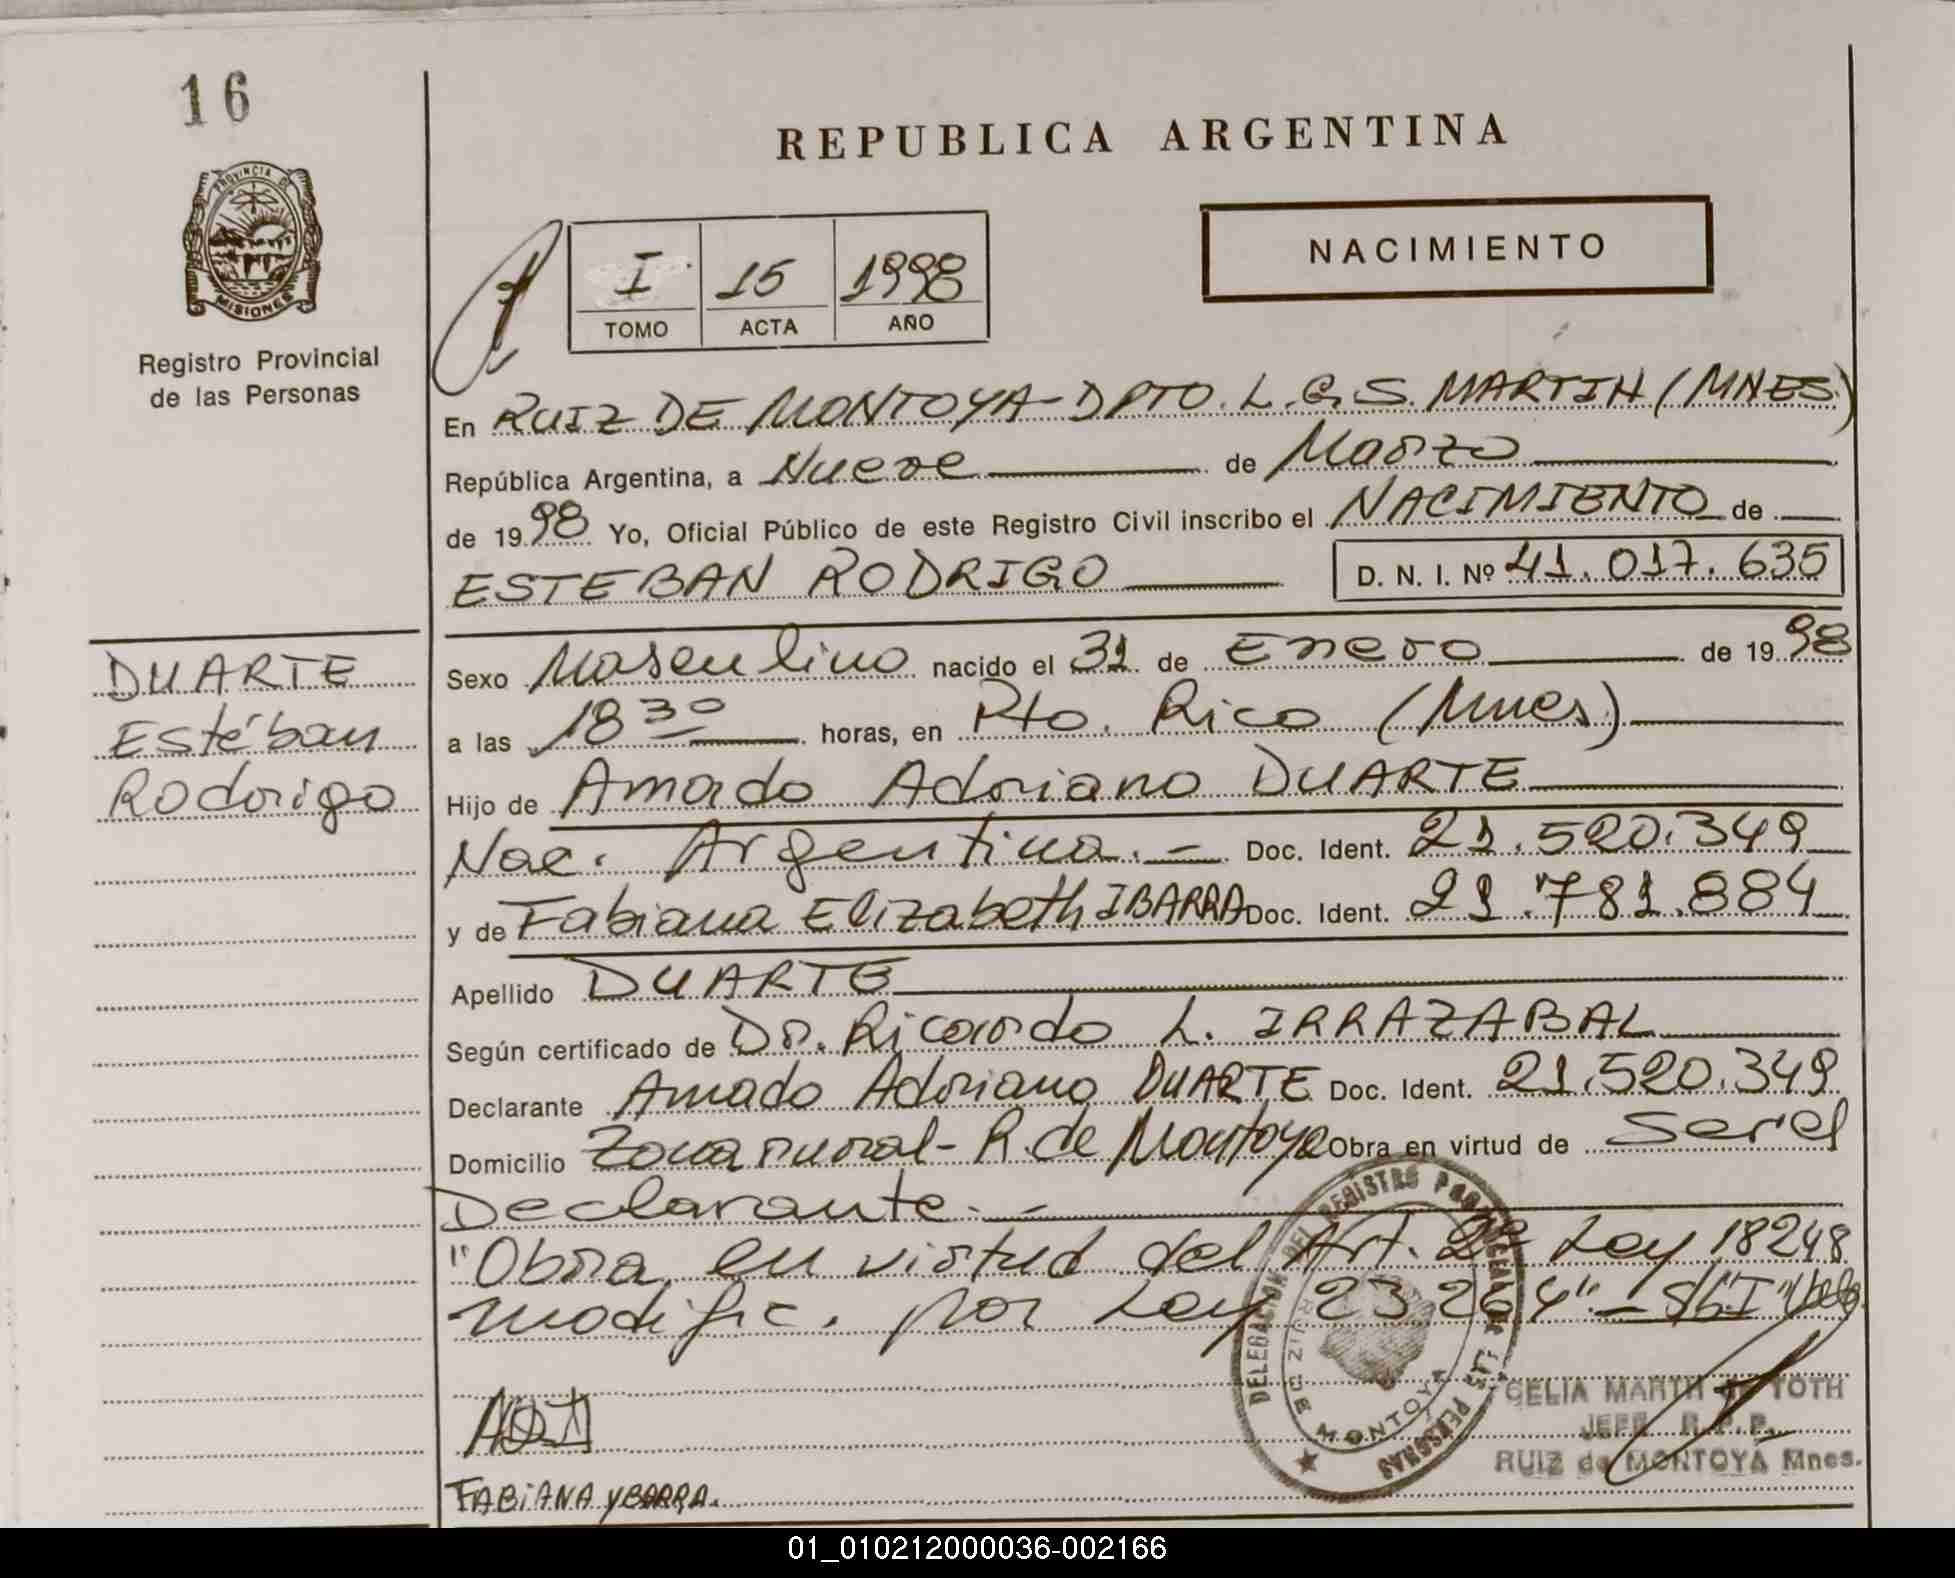 16
PROVINCIA DE
MISIONES
Registro Provincial
de las Personas
REPUBLICA ARGENTINA
NACIMIENTO
I 15 1998
TOMO ACTA AÑO
En RUIZ DE MONTOYA-DPTO. L.G.S. MARTIN (MNES)
República Argentina, a Nueve de Marzo
de 1998 Yo, Oficial Público de este Registro Civil inscribo el NACIMIENTO de
ESTEBAN RODRIGO D. N. I. Nº 41.017.635
DUARTE
Estéban
Rodrigo
Sexo Masculino nacido el 31 de Enero de 1998
a las 18 30 horas, en Pto. Rico (Mnes)
Hijo de Amado Adriano DUARTE
Nac. Argentina.- Doc. Ident. 21.520.349
y de Fabiana Elizabeth IBARRA Doc. Ident. 21.781.884
Apellido DUARTE
Según certificado de Dr. Ricardo L. IRRAZABAL
Declarante Amado Adriano DUARTE Doc. Ident. 21.520.349
Domicilio Zona rural - R. de Montoya Obra en virtud de Ser el
Declarante.-
"Obra en virtud del Art. 2º Ley 18248
modific. por Ley 23264".- S/b "I" Vale
DELEGACION DEL REGISTRO PROVINCIAL DE LAS PERSONAS
RUIZ DE MONTOYA
CELIA MARTA DE TOTH
JEFE R.P.P.
RUIZ de MONTOYA Mnes.
FABIANA YBARRA.
01_010212000036-002166